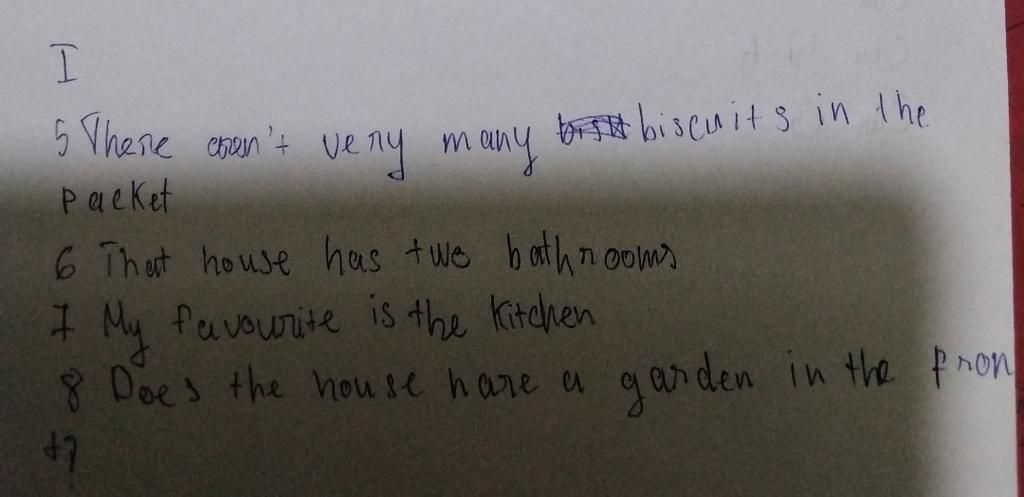 I
5 There aren't very many biscuits in the
packet
6 That house has two bathrooms
7 My favourite is the kitchen
8 Does the house have a garden in the fron
t?